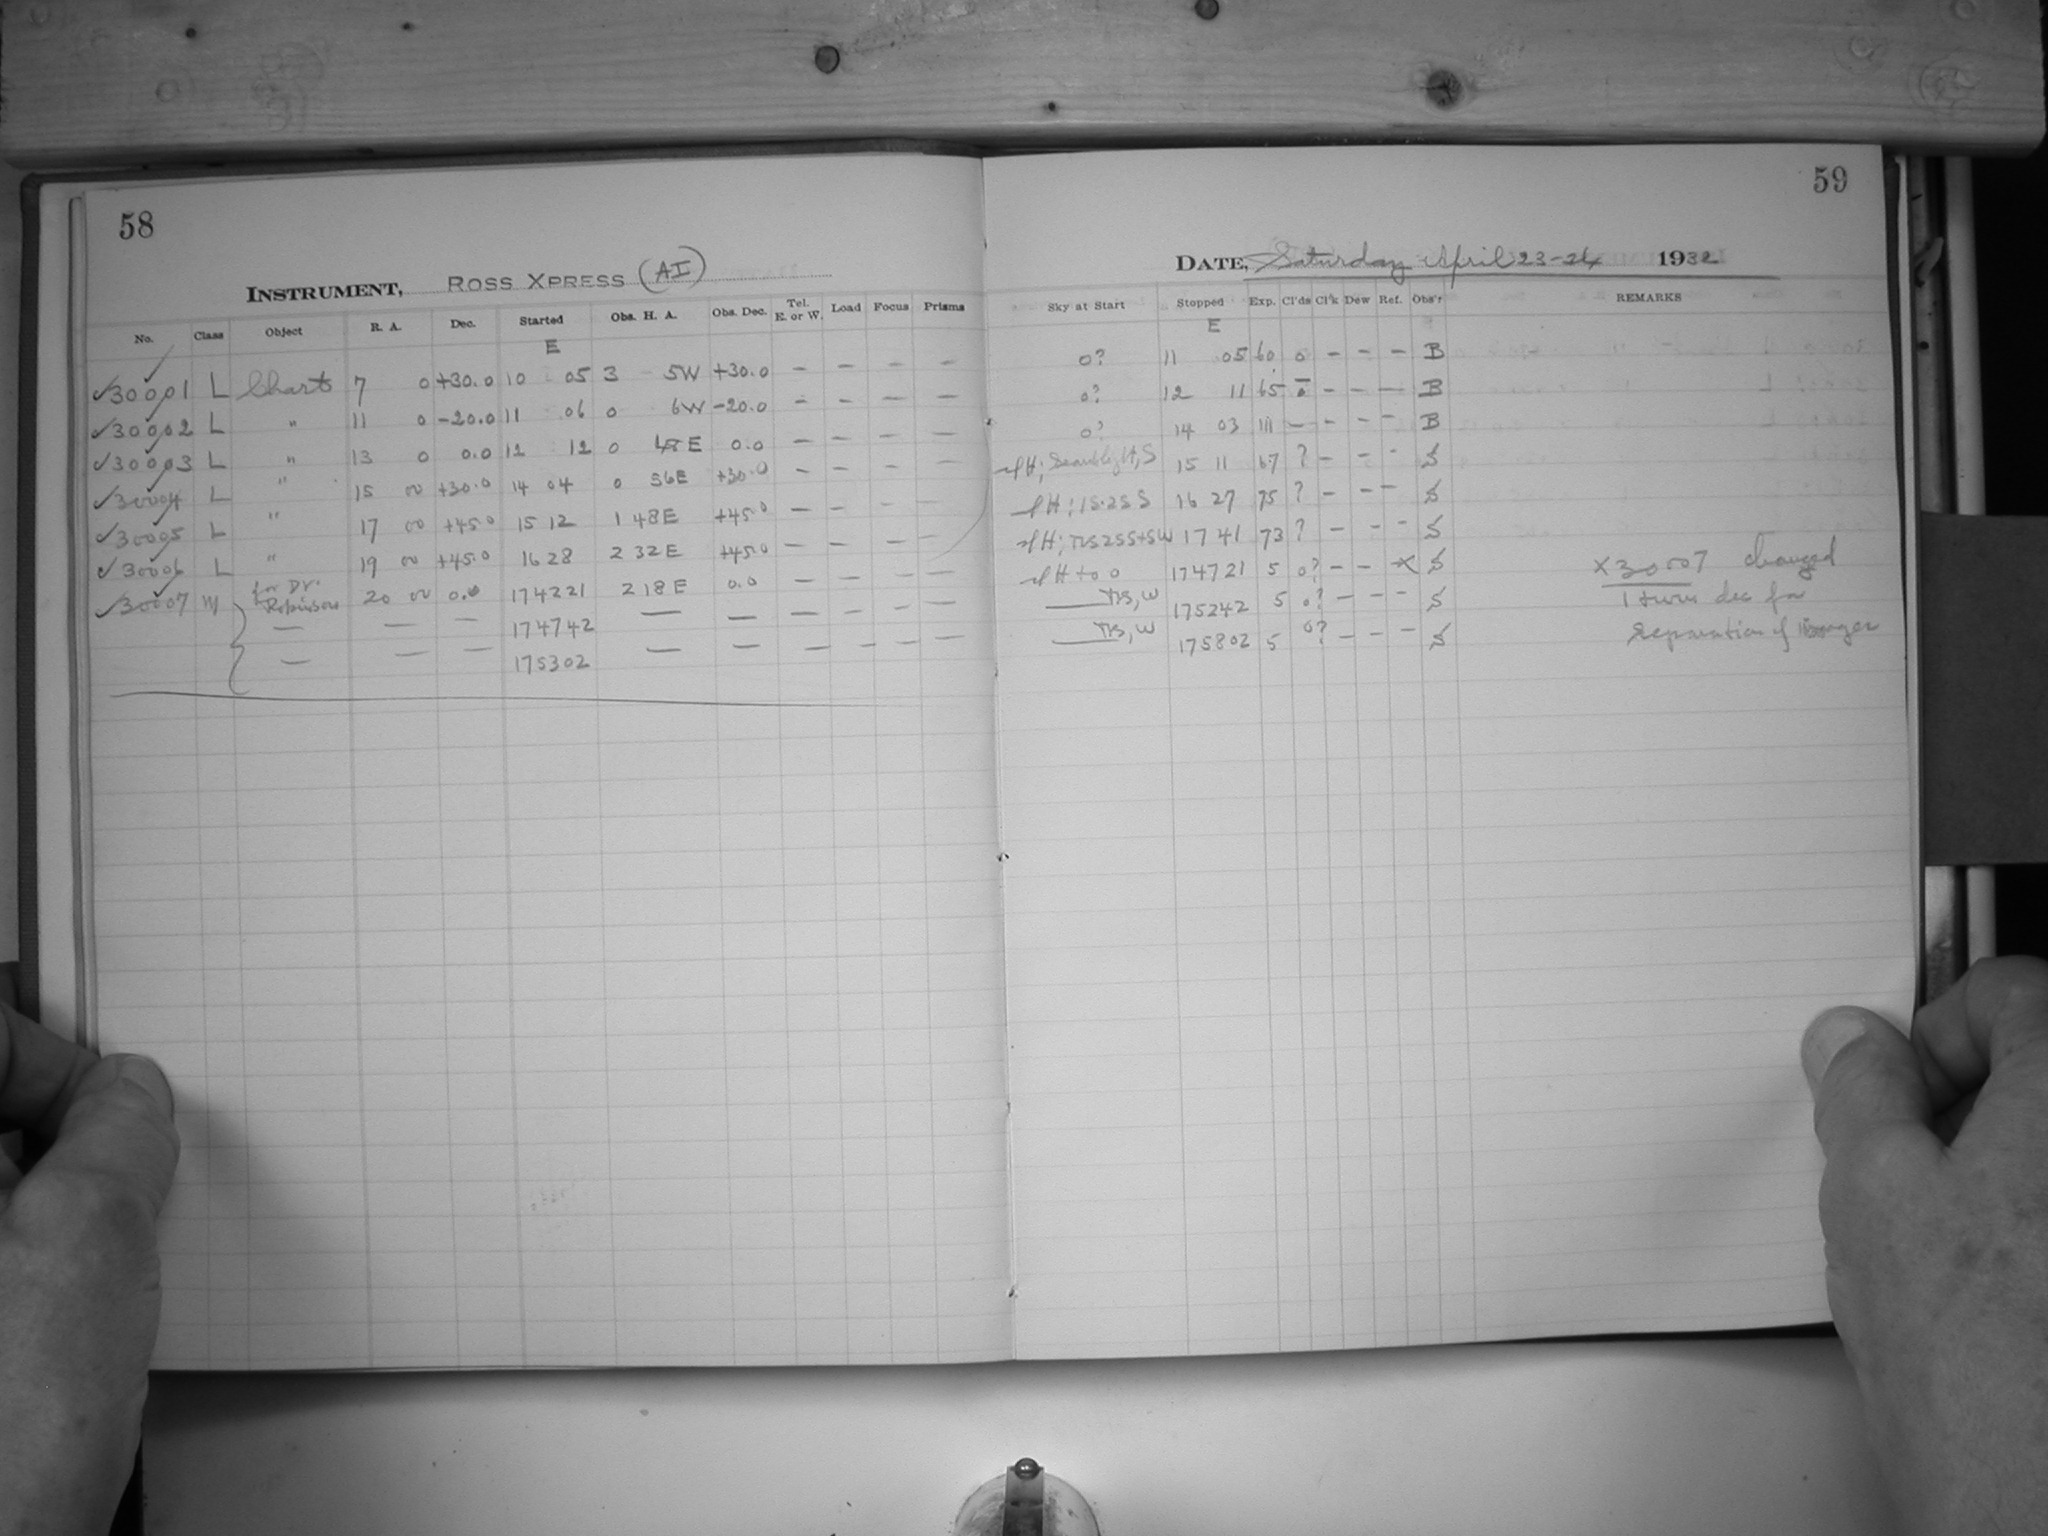 58
INSTRUMENT, ROSS XPRESS (AI)
No. Class Object R. A. Dec. Started Obs. H. A. Obs. Dec. Tel. E. or W. Load Focus Prisms
E
✓30001 L Charts 7 0 +30.0 10 05 3 5W +30.0 — — — —
✓30002 L " 11 0 -20.0 11 06 0 6W -20.0 — — — —
✓30003 L " 13 0 0.0 12 12 0 48E 0.0 — — — —
✓30004 L " 15 00 +30.0 14 04 0 56E +30.0 — — — —
✓30005 L " 17 00 +45.0 15 12 1 48E +45.0 — — — —
✓30006 L " 19 00 +45.0 16 28 2 32E +45.0 — — — —
✓30007 M for Dr. Robinson 20 00 0.0 174221 2 18E 0.0 — — — —
— — — 174742 — — — — — —
— — — 175302 — — — — — —
59
DATE, Saturday April 23-24 1932
Sky at Start Stopped Exp. Cl'ds Cl'k Dew Ref. Obs'r REMARKS
E
0? 11 05 60 0 — — — B
0? 12 11 65 0 — — — B
0? 14 03 111 — — — — B
H, S 15 11 67 ? — — — S
H; 15.25 S 16 27 75 ? — — — S
H; 17 41 73 ? — — — S
H to 0 174721 5 0? — — X S X30007 changed
W 175242 5 0? — — — S 1 turn dec for
W 175802 5 0? — — — S Separation of images